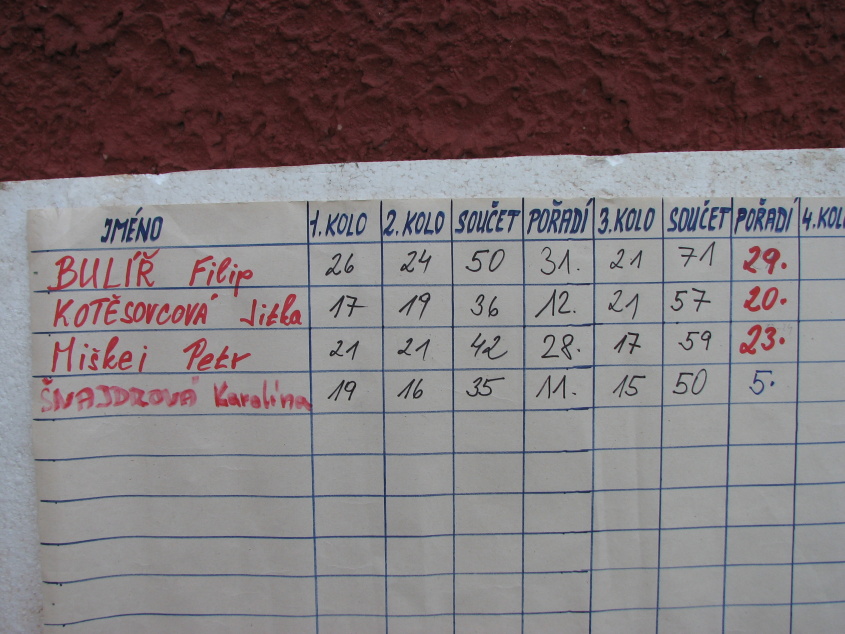 JMÉNO 1. KOLO 2. KOLO SOUČET POŘADÍ 3. KOLO SOUČET POŘADÍ 4. KOLO
BULÍŘ Filip 26 24 50 31. 21 71 29.
KOTĚSOVCOVÁ Jitka 17 19 36 12. 21 57 20.
Miškei Petr 21 21 42 28. 17 59 23.
ŠNAJDROVÁ Karolína 19 16 35 11. 15 50 5.